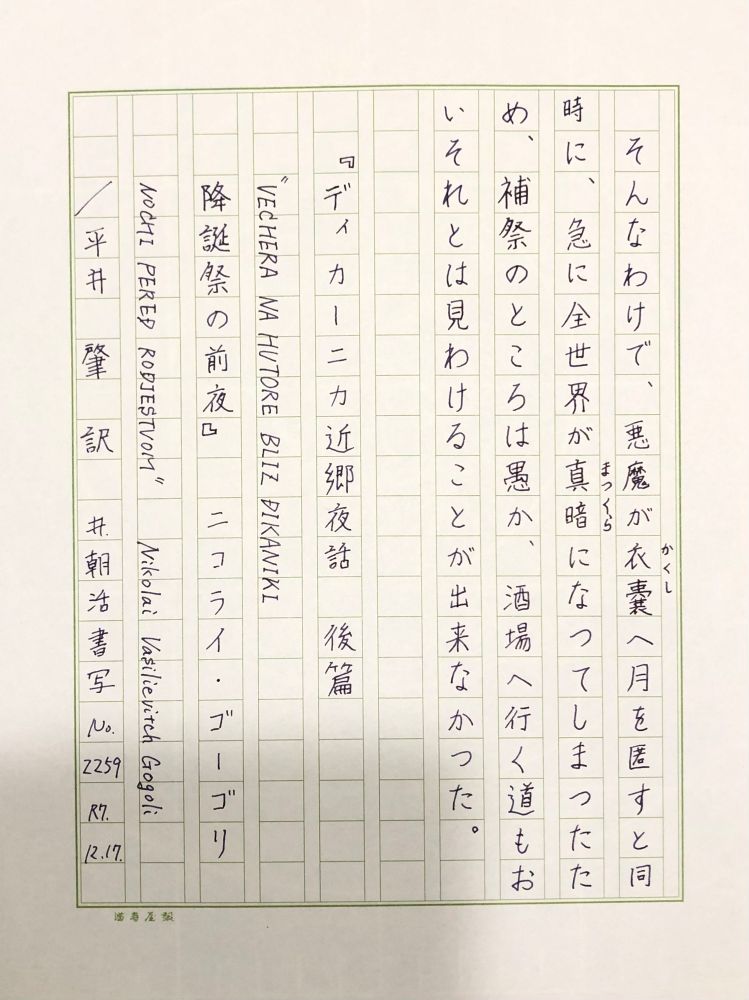 そんなわけで、悪魔が衣嚢へ月を匿すと同
かくし
時に、急に全世界が真暗になつてしまつたた
まつくら
め、補祭のところは愚か、酒場へ行く道もお
いそれとは見わけることが出来なかつた。
『ディカーニカ近郷夜話 後篇
"VECHERA NA HUTORE BLIZ DIKANIKI
降誕祭の前夜』 ニコライ・ゴーゴリ
NOCHI PERED RODJESTVOM" Nikolai Vasilievitch Gogoli
／平井 肇 訳 井.朝活書写 No. 2259 R7. 12.17.
満寿屋製